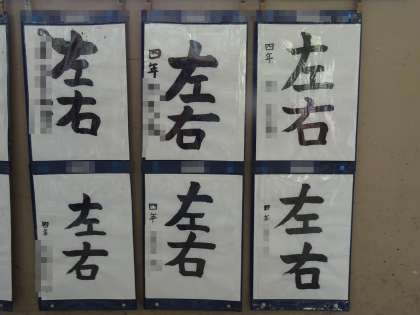 左右
四年
左右
四年
左右
四年
左右
四年
左右
四年
左右